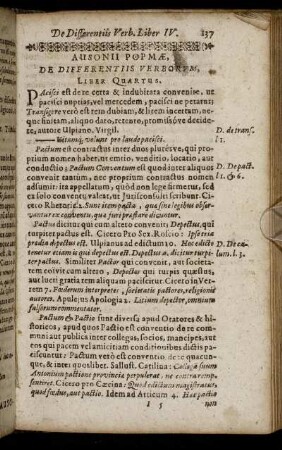 De Differentiis Verb. Liber IV. 137
AUSONII POPMÆ,
DE DIFFERENTIIS VERBORUM,
LIBER QUARTUS.
PAcisci est de re certa & indubitata convenire, ut
pacisci nuptias, vel mercedem, pacisci ne petatur:
Transigere vero est rem dubiam, & litem incertam, ne-
que finitam, aliquo dato, retento, promissóve decide-
re, autore Ulpiano. Virgil. D. de trans.
—— Vitamq; volunt pro laude pacisci. l. 1.
Pactum est contractus inter duos plurésve, qui pro-
prium nomen habent, ut emtio, venditio, locatio, aut
conductio; Pactum Conventum est quod inter aliquos D. De pact.
convenit tantum, & non nomen proprii contractus l. 1. & 6.
adsumit: ita appellatum, quòd non lege firmetur, sed
sola conventione valeat, ut Jurisconsulti scribunt. Ci-
cero Rhetoric. 2. Sunt item pacta, quæ sine legibus obser-
vantur ex convento, quæ juri præstare dicuntur.
Pactus dicitur qui cum altero convenit: Depectus, qui
turpiter pactus est. Cicero Pro Sex. Roscio: Isse tibi
prædia depectus est. Ulpianus ad edictum 10. Hoc edicto D. De ca-
tenetur etiam is qui depectus est. Depectus à, dicitur turpi- lum. l. 3.
ter pactus. Similiter Pactor qui convenit, aut societa-
tem coivit cum altero, Depector qui turpis quæstus,
aut luceri gratia rem alienam paciscitur. Cicero in Ver-
rem 7. Fœderum interpretes, societatis pactores, religionis
autores. Apulejus Apologia 1. Litium depector, omnium
falsorum commentator.
Pactum & Pactio sunt diversa apud Oratores & hi-
storicos, apud quos Pactio est conventio de re com-
muni aut publica inter collegas, socios, mancipes, aut
ens qui pacem vel amicitiam conditionibus dictis pa-
ciscuntur: Pactum verò est conventio de re quacun-
que, & inter quoslibet. Sallust. Catilina: Collegā suum
Antonium pactione provinciæ perpulerat, ne contra remp.
sentiret. Cicero pro Cæcina: Quod edictum magistratus,
quod fœdus, aut pactio. Idem ad Atticum 4. Hæc pactio
I 5 non